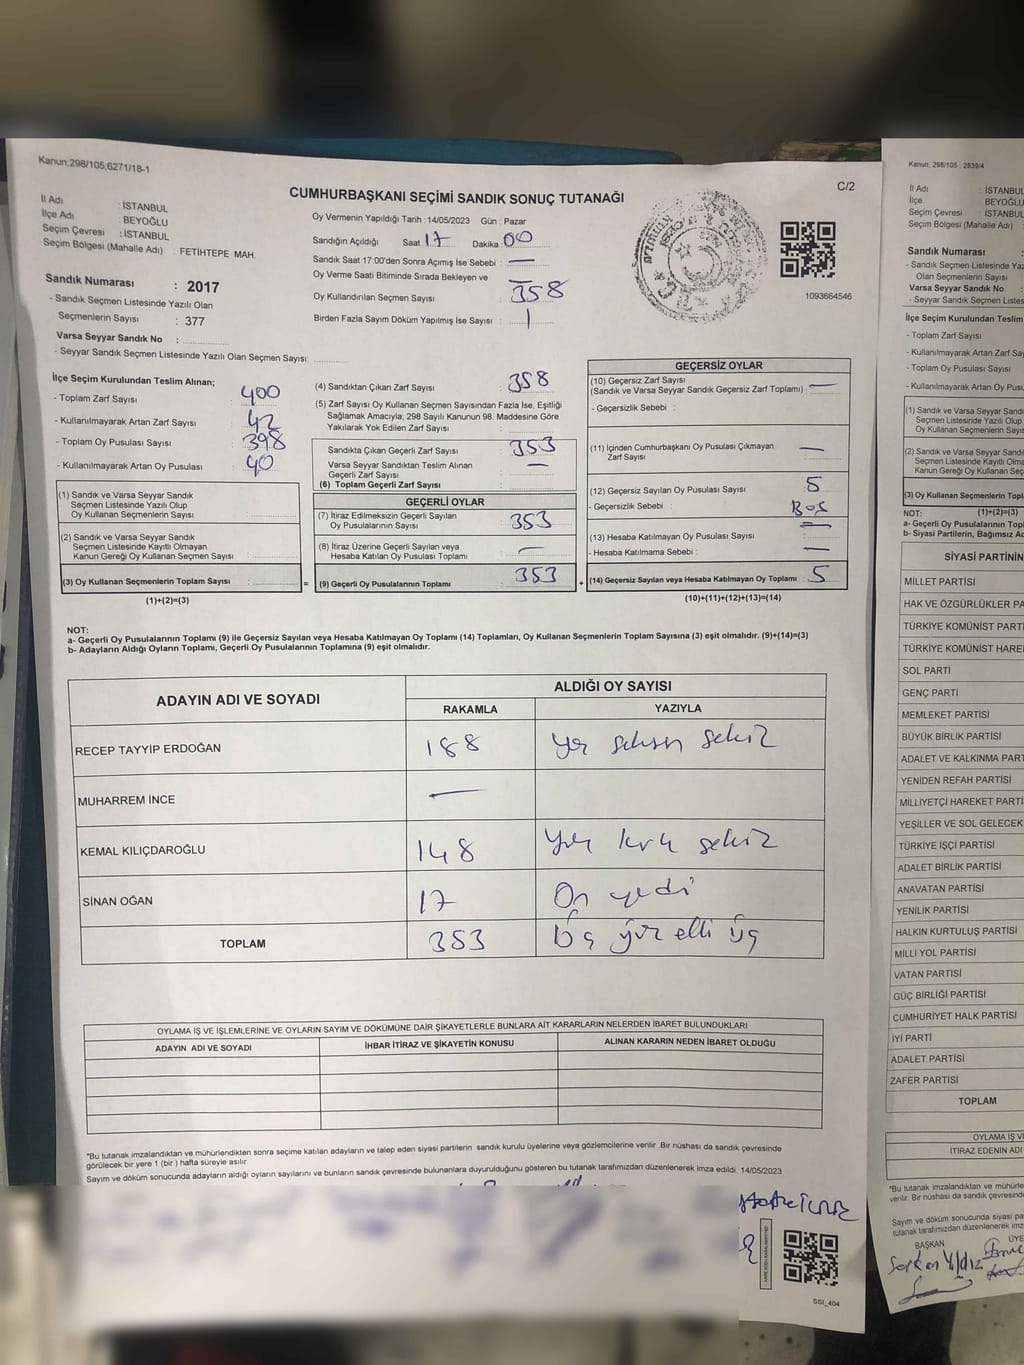 Kanun:298/105,6271/18-1
C/2
CUMHURBAŞKANI SEÇİMİ SANDIK SONUÇ TUTANAĞI
İl Adı : İSTANBUL
İlçe Adı : BEYOĞLU
Seçim Çevresi : İSTANBUL
Seçim Bölgesi (Mahalle Adı) : FETİHTEPE MAH.
Sandık Numarası : 2017
- Sandık Seçmen Listesinde Yazılı Olan
Seçmenlerin Sayısı : 377
Varsa Seyyar Sandık No :
- Seyyar Sandık Seçmen Listesinde Yazılı Olan Seçmen Sayısı:
Oy Vermenin Yapıldığı Tarih : 14/05/2023 Gün : Pazar
Sandığın Açıldığı Saat 17 Dakika 00
Sandık Saat 17:00'den Sonra Açımış İse Sebebi : —
Oy Verme Saati Bitiminde Sırada Bekleyen ve —
Oy Kullandırılan Seçmen Sayısı : 358
Birden Fazla Sayım Döküm Yapılmış İse Sayısı : 1
1093664546
İlçe Seçim Kurulundan Teslim Alınan;
- Toplam Zarf Sayısı : 400
- Kullanılmayarak Artan Zarf Sayısı : 42
- Toplam Oy Pusulası Sayısı : 398
- Kullanılmayarak Artan Oy Pusulası : 40
(1) Sandık ve Varsa Seyyar Sandık
Seçmen Listesinde Yazılı Olup
Oy Kullanan Seçmenlerin Sayısı :
(2) Sandık ve Varsa Seyyar Sandık
Seçmen Listesinde Kayıtlı Olmayan
Kanun Gereği Oy Kullanan Seçmen Sayısı :
(3) Oy Kullanan Seçmenlerin Toplam Sayısı : =
(1)+(2)=(3)
(4) Sandıktan Çıkan Zarf Sayısı : 358
(5) Zarf Sayısı Oy Kullanan Seçmen Sayısından Fazla İse, Eşitliği
Sağlamak Amacıyla; 298 Sayılı Kanunun 98. Maddesine Göre
Yakılarak Yok Edilen Zarf Sayısı :
Sandıkta Çıkan Geçerli Zarf Sayısı : 353
Varsa Seyyar Sandıktan Teslim Alınan —
Geçerli Zarf Sayısı :
(6) Toplam Geçerli Zarf Sayısı :
GEÇERLİ OYLAR
(7) İtiraz Edilmeksizin Geçerli Sayılan
Oy Pusulalarının Sayısı : 353
(8) İtiraz Üzerine Geçerli Sayılan veya
Hesaba Katılan Oy Pusulası Sayısı : —
(9) Geçerli Oy Pusulalarının Toplamı : 353 +
GEÇERSİZ OYLAR
(10) Geçersiz Zarf Sayısı
(Sandık ve Varsa Seyyar Sandık Geçersiz Zarf Toplamı) : —
- Geçersizlik Sebebi :
(11) İçinden Cumhurbaşkanı Oy Pusulası Çıkmayan
Zarf Sayısı : —
(12) Geçersiz Sayılan Oy Pusulası Sayısı : 5
- Geçersizlik Sebebi : BOŞ
(13) Hesaba Katılmayan Oy Pusulası Sayısı : —
- Hesaba Katılmama Sebebi : —
(14) Geçersiz Sayılan veya Hesaba Katılmayan Oy Toplamı : 5
(10)+(11)+(12)+(13)=(14)
NOT:
a- Geçerli Oy Pusulalarının Toplamı (9) ile Geçersiz Sayılan veya Hesaba Katılmayan Oy Toplamı (14) Toplamları, Oy Kullanan Seçmenlerin Toplam Sayısına (3) eşit olmalıdır. (9)+(14)=(3)
b- Adayların Aldığı Oyların Toplamı, Geçerli Oy Pusulalarının Toplamına (9) eşit olmalıdır.
ADAYIN ADI VE SOYADI ALDIĞI OY SAYISI
RAKAMLA YAZIYLA
RECEP TAYYİP ERDOĞAN 188 yüz seksen sekiz
MUHARREM İNCE —
KEMAL KILIÇDAROĞLU 148 yüz kırk sekiz
SİNAN OĞAN 17 On yedi
TOPLAM 353 üç yüz elli üç
OYLAMA İŞ VE İŞLEMLERİNE VE OYLARIN SAYIM VE DÖKÜMÜNE DAİR ŞİKAYETLERLE BUNLARA AİT KARARLARIN NELERDEN İBARET BULUNDUKLARI
ADAYIN ADI VE SOYADI İHBAR İTİRAZ VE ŞİKAYETİN KONUSU ALINAN KARARIN NEDEN İBARET OLDUĞU
*Bu tutanak imzalandıktan ve mühürlendikten sonra seçime katılan adayların ve talep eden siyasi partilerin sandık kurulu üyelerine veya gözlemcilerine verilir. Bir nüshası da sandık çevresinde
görülecek bir yere 1 (bir) hafta süreyle asılır.
Sayım ve döküm sonucunda adayların aldığı oyların sayılarını ve bunların sandık çevresinde bulunanlara duyurulduğunu gösteren bu tutanak tarafımızdan düzenlenerek imza edildi. 14/05/2023
SSI_404
Kanun: 298/105 , 2839/4
İl Adı : İSTANBUL
İlçe : BEYOĞLU
Seçim Çevresi : İSTANBUL
Seçim Bölgesi (Mahalle Adı)
Sandık Numarası
- Sandık Seçmen Listesinde Yazılı
Olan Seçmenlerin Sayısı
Varsa Seyyar Sandık No :
- Seyyar Sandık Seçmen Listes
İlçe Seçim Kurulundan Teslim
- Toplam Zarf Sayısı
- Kullanılmayarak Artan Zarf Sayısı
- Toplam Oy Pusulası Sayısı
- Kullanılmayarak Artan Oy Pusu
(1) Sandık ve Varsa Seyyar
Seçmen Listesinde Yazılı Olup
Oy Kullanan Seçmenlerin
(2) Sandık ve Varsa Seyyar
Seçmen Listesinde Kayıtlı Olma
Kanun Gereği Oy Kullanan Seç
(3) Oy Kullanan Seçmenlerin Topl
(1)+(2)=(3)
NOT:
a- Geçerli Oy Pusulalarının Topl
b- Siyasi Partilerin, Bağımsız Ad
SİYASİ PARTİNİN
MİLLET PARTİSİ
HAK VE ÖZGÜRLÜKLER PA
TÜRKİYE KOMÜNİST PARTİ
TÜRKİYE KOMÜNİST HAREK
SOL PARTİ
GENÇ PARTİ
MEMLEKET PARTİSİ
BÜYÜK BİRLİK PARTİSİ
ADALET VE KALKINMA PART
YENİDEN REFAH PARTİSİ
MİLLİYETÇİ HAREKET PARTİSİ
YEŞİLLER VE SOL GELECEK
TÜRKİYE İŞÇİ PARTİSİ
ADALET BİRLİK PARTİSİ
ANAVATAN PARTİSİ
YENİLİK PARTİSİ
HALKIN KURTULUŞ PARTİSİ
MİLLİ YOL PARTİSİ
VATAN PARTİSİ
GÜÇ BİRLİĞİ PARTİSİ
CUMHURİYET HALK PARTİSİ
İYİ PARTİ
ADALET PARTİSİ
ZAFER PARTİSİ
TOPLAM
OYLAMA İŞ VE
İTİRAZ EDENİN ADI
*Bu tutanak imzalandıktan ve mühürle
verilir. Bir nüshası da sandık çevresinde
Sayım ve döküm sonucunda siyasi pa
tutanak tarafımızdan düzenlenerek imza
BAŞKAN ÜYE
Serkan Yıldız